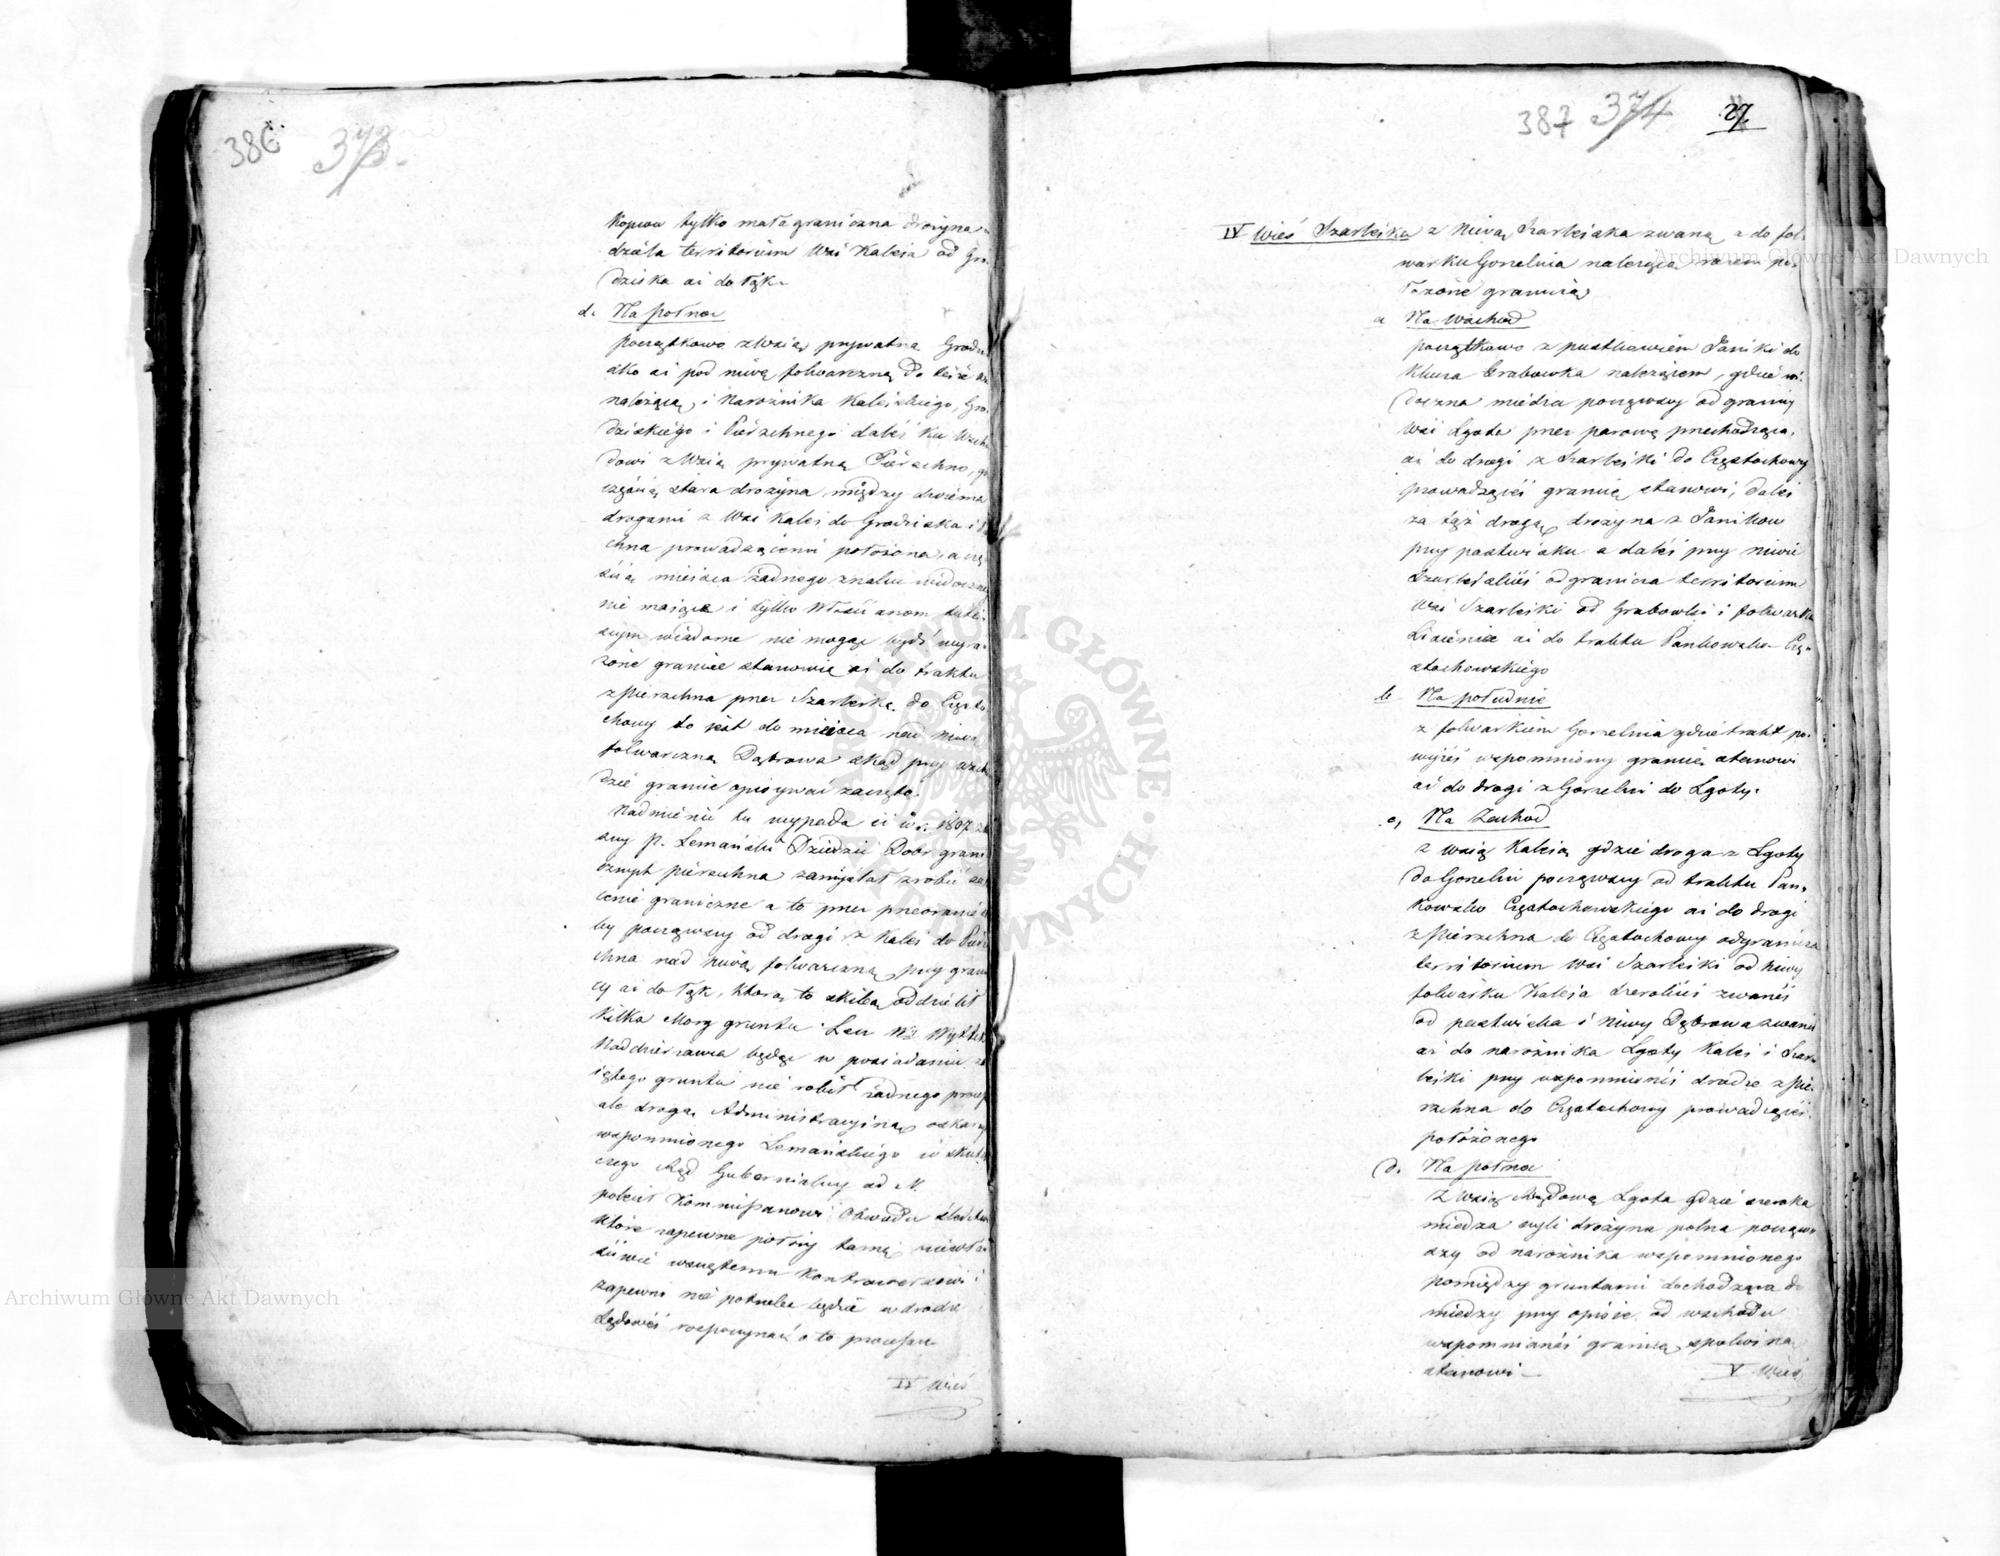 386 373.
Kopca tylko mała graniczna drożyna
dziela territorium Wsi Kalesia od Gro
dziska aż do łąk.
d. Na północ
początkowo z Wsią prywatną Grodzi
sko aż pod niwę folwarczną do
należącą, i Narożnika Kalejskiego, Gro
dziskiego i Pierzchnego daléj ku Wscho
dowi z Wsią prywatną Pierzchno,
częścią stara drożyna między dwiema
drogami z Wsi Kalei do Grodziska i
chna prowadzącemi położona, a czę
ścią miejsca żadnego znaku widoczne
nie mające i tylko Włościanom tutéj
szym wiadome nie mogąc bydź wyra
żone granice stanowią aż do traktu
z Pierzchna przez Szarlejkę do Często
chowy to jest do miejsca nad niwą
folwarczną Dąbrowa skąd przy wscho
dzie granice opisywać zaczęto.
Nadmienić tu wypada iż w r. 1807
szy p. Lemański Dziedzic Dóbr grani
cznych Pierzchna zamyślał zrobić
cenie graniczne a to przez przeoranie
by począwszy od drogi z Kalei do Pierz
chna nad niwą folwarczną przy grani
cy aż do łąk, którą to skibą oddzielił
kilka Morg gruntu. Lecz
Naddzierżawca będąc w posiadaniu
jętego gruntu nie robił żadnego process
ale drogą Administracyjną oskarż
wspomnionego Lemańskiego w skut
czego Rząd Gubernialny ad N.
polecił Kommissarzowi Obwodu śledztwo
które zapewne położy tamę niewła
ściwie wszczętemu Kontrowersowi i
zapewne nie potrzeba będzie w drodze
Sądowéj rozpoczynać o to processu
IV Wieś
387 374 27.
IV Wieś Szarlejka z Niwą Szarlejska zwaną a do fol
warku Gorzelnia należącą razem po
łożone graniczą
a Na Wschód
początkowo z pustkowiem Janiki do
klucza Grabowka należącem, gdzie wi
doczna miedza począwszy od granicy
Wsi Lgota przez parowę przechodząca,
aż do drogi z Szarlejki do Częstochowy
prowadzącéj granicę stanowi, daléj
za tąż drogą, drożyna z Janików
przy pastwisku a daléj przy niwie
Szarlejskiéj odgranicza territorium
Wsi Szarlejki od Grabówki i folwarku
Lisieniec aż do traktu Pankowsko-Czę-
stochowskiégo
b. Na południe
z folwarkiem Gorzelnia gdzie trakt po
wyżéj wspomniony granicę stanowi
aż do drogi z Gorzelni do Lgoty.
c, Na Zachod
z wsią Kaleją gdzie droga z Lgoty
do Gorzelni począwszy od traktu Pan-
kowsko Częstochowskiego aż do drogi
z Pierzchna do Częstochowy odgranicza
territorium Wsi Szarlejki od niwy
folwarku Kaleja zwanéj
od pastwiska i Niwy Dąbrowa zwanéj
aż do narożnika Lgoty Kalei i Szar
lejki przy wspomnionéj drodze z Pie
rzchna do Częstochowy prowadzącéj
położonego
d. Na północ
Z Wsią Rządową Lgota gdzie szeroka
miedza czyli drożyna polna począw-
szy od narożnika wspomnionego
pomiędzy gruntami dochodząca do
miedzy przy opisie od wschodu
wspomnianéj granicę
stanowi –
V. Wieś
Archiwum Główne Akt Dawnych
Archiwum Główne Akt Dawnych
ARCHIWUM GŁÓWNE AKT DAWNYCH